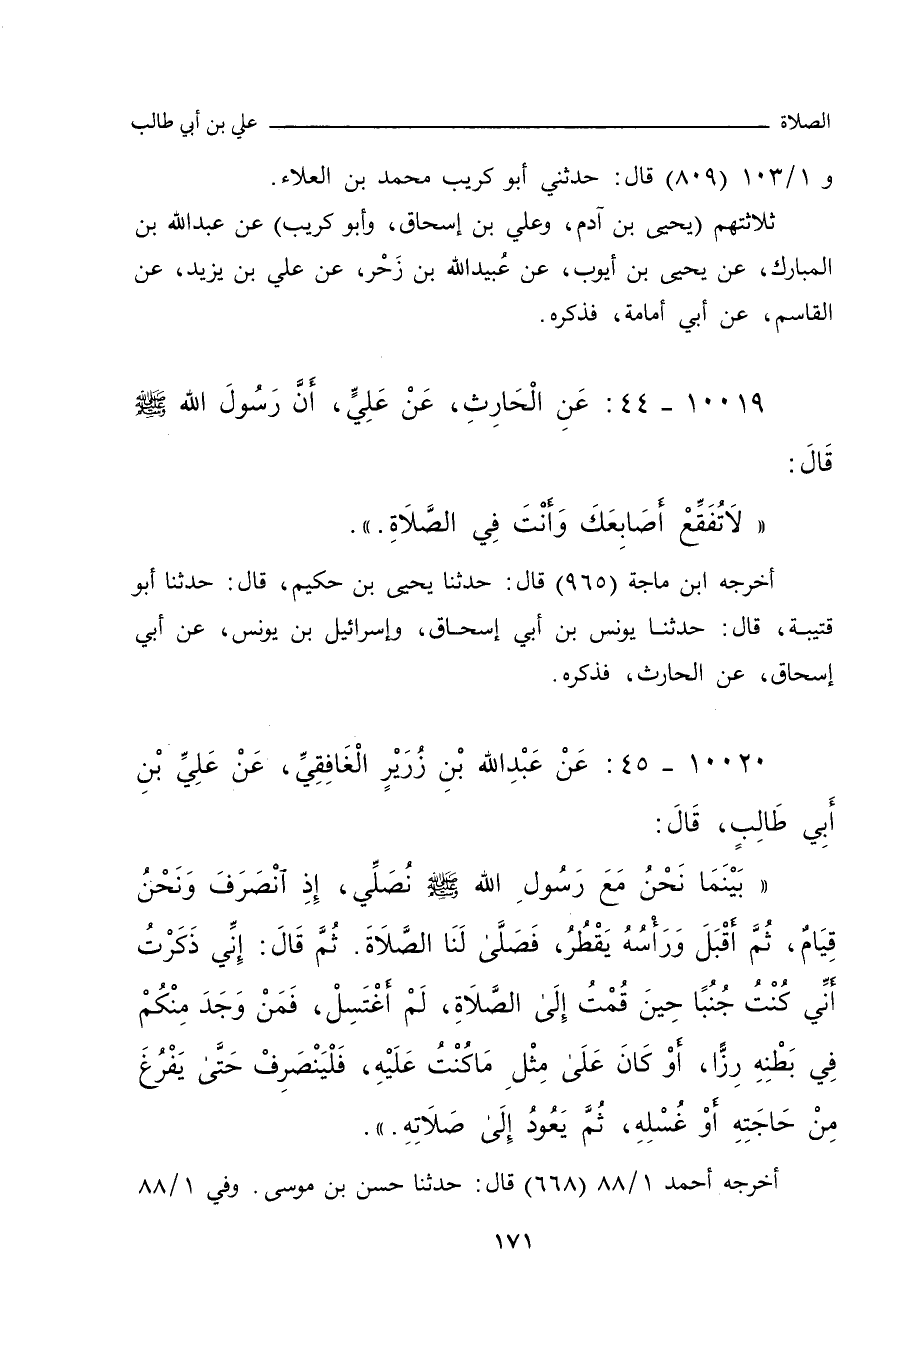 الصلاة ــــــــــــــــ علي بن أبي طالب
و ١/ ١٠٣ (٨٠٩) قال: حدثني أبو كريب محمد بن العلاء.
ثلاثتهم (يحيى بن آدم، وعلي بن إسحاق، وأبو كريب) عن عبدالله بن
المبارك، عن يحيى بن أيوب، عن عُبيدالله بن زَحْر، عن علي بن يزيد، عن
القاسم، عن أبي أمامة، فذكره.
١٠٠١٩ - ٤٤: عَنِ الْحَارِثِ، عَنْ عَلِيٍّ، أَنَّ رَسُولَ الله ﷺ
قَالَ:
« لَاتُفَقِّعْ أَصَابِعَكَ وَأَنْتَ فِي الصَّلَاةِ.».
أخرجه ابن ماجة (٩٦٥) قال: حدثنا يحيى بن حكيم، قال: حدثنا أبو
قتيبـة، قال: حدثنـا يونس بن أبي إسحـاق، وإسرائيل بن يونس، عن أبي
إسحاق، عن الحارث، فذكره.
١٠٠٢٠ - ٤٥: عَنْ عَبْدِالله بْنِ زُرَيْرٍ الْغَافِقِيِّ، عَنْ عَلِيِّ بْنِ
أَبِي طَالِبٍ، قَالَ:
« بَيْنَمَا نَحْنُ مَعَ رَسُولِ الله ﷺ نُصَلِّي، إِذِ ٱنْصَرَفَ وَنَحْنُ
قِيَامٌ، ثُمَّ أَقْبَلَ وَرَأْسُهُ يَقْطُرُ، فَصَلَّىٰ لَنَا الصَّلَاةَ. ثُمَّ قَالَ: إِنِّي ذَكَرْتُ
أَنِّي كُنْتُ جُنُبًا حِينَ قُمْتُ إِلَىٰ الصَّلَاةِ، لَمْ أَغْتَسِلْ، فَمَنْ وَجَدَ مِنْكُمْ
فِي بَطْنِهِ رِزًّا، أَوْ كَانَ عَلَىٰ مِثْلِ مَاكُنْتُ عَلَيْهِ، فَلْيَنْصَرِفْ حَتَّىٰ يَفْرُغَ
مِنْ حَاجَتِهِ أَوْ غُسْلِهِ، ثُمَّ يَعُودُ إِلَىٰ صَلَاتِهِ.».
أخرجه أحمد ١/ ٨٨ (٦٦٨) قال: حدثنا حسن بن موسى. وفي ١/ ٨٨
١٧١